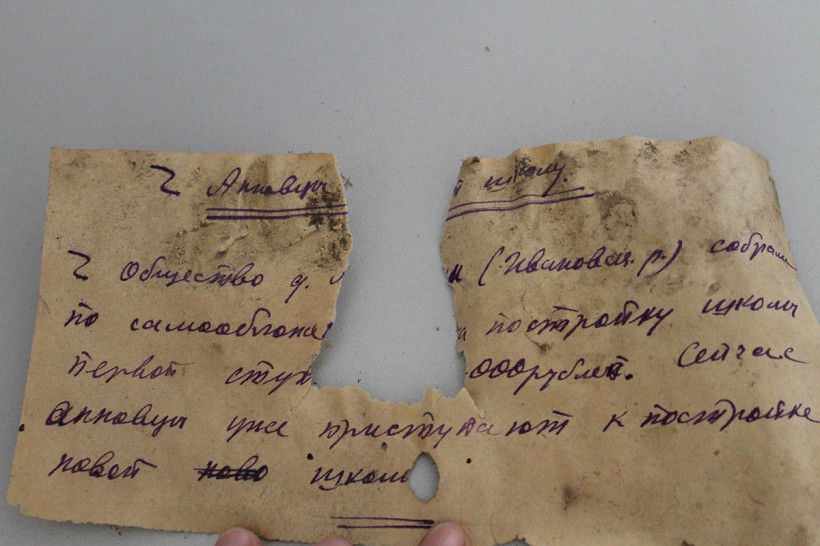 Анновцы школу.
Общество д. (Ивановск. р.) собрали
по самообложе постройку школы
первой ступ 000 рублей. Сейчас
анновцы уже приступают к постройке
новой ново школы